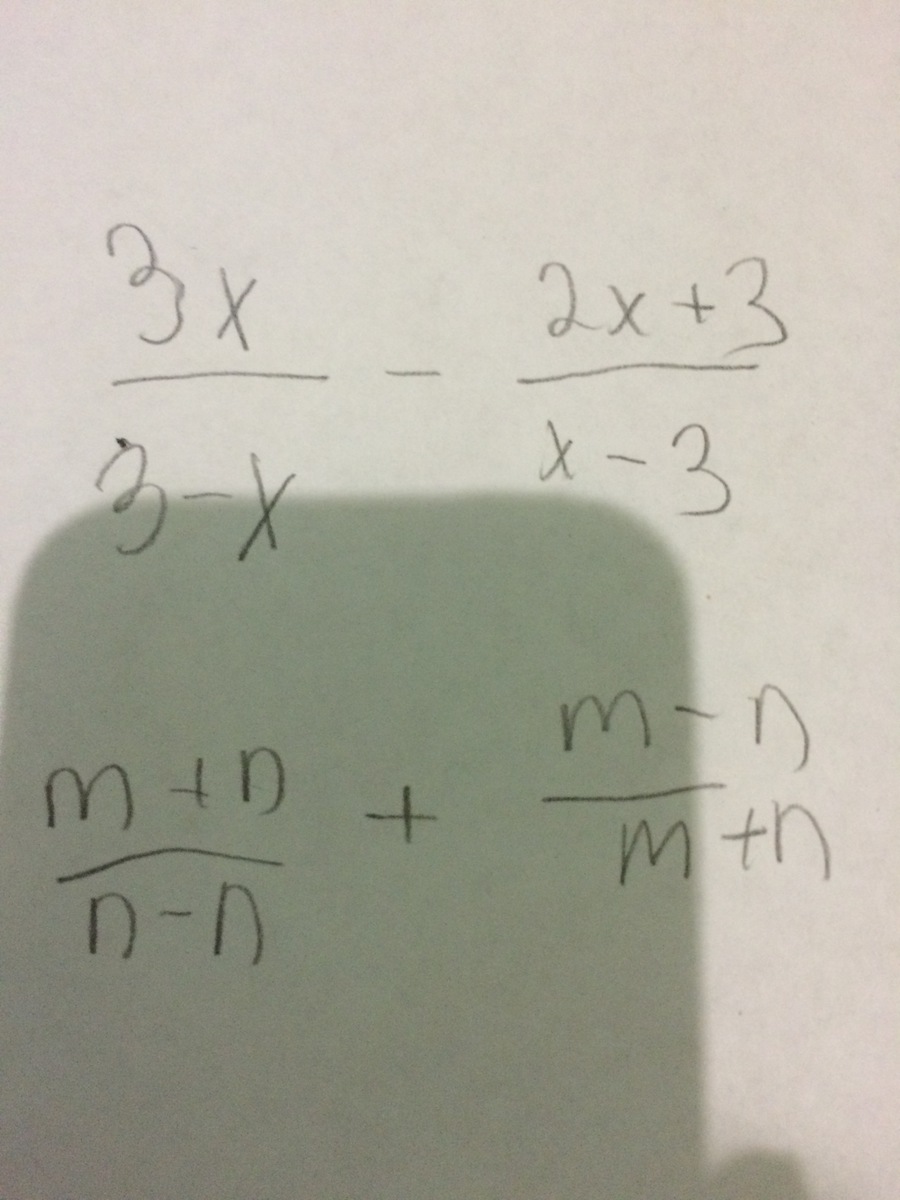 3x / 3-x - 2x+3 / x-3
m+n / n-n + m-n / m+n